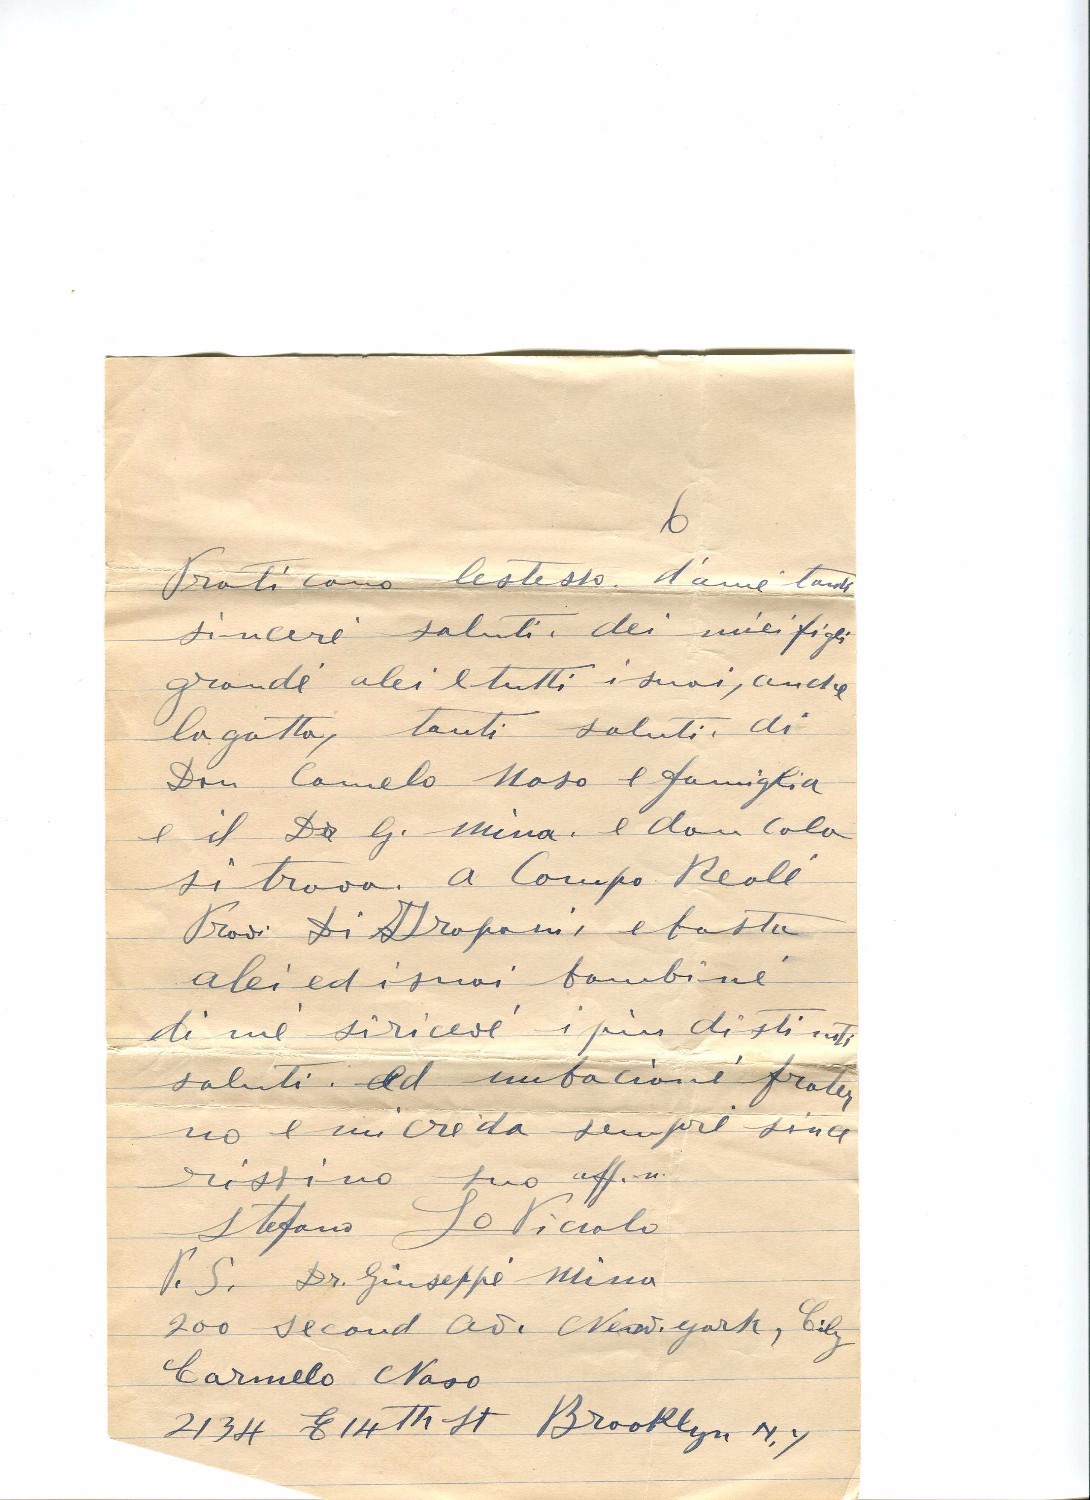 6
Prati cano lestesso. d'amé tanti
sinceré saluti. dei miei figli
grandé alei e tutti i suoi, anche
lagatta, tanti saluti. di
Don Camelo Naso e famiglia
e il Dr G. Mina. e don Cola
si trova. a Campo Realé
Prov: Di Trapani, e basta
alei ed i suoi bambiné
di mé siricevé i piu distinti
saluti. ed unbacioné frater
no e mi creda sempré since
rissimo suo aff.m.
Stefano Lo Piccolo
P. S. Dr. Giuseppé Mina
200 second Av. New. york, City
Carmelo Naso
2134 E 14th St Brooklyn N, y